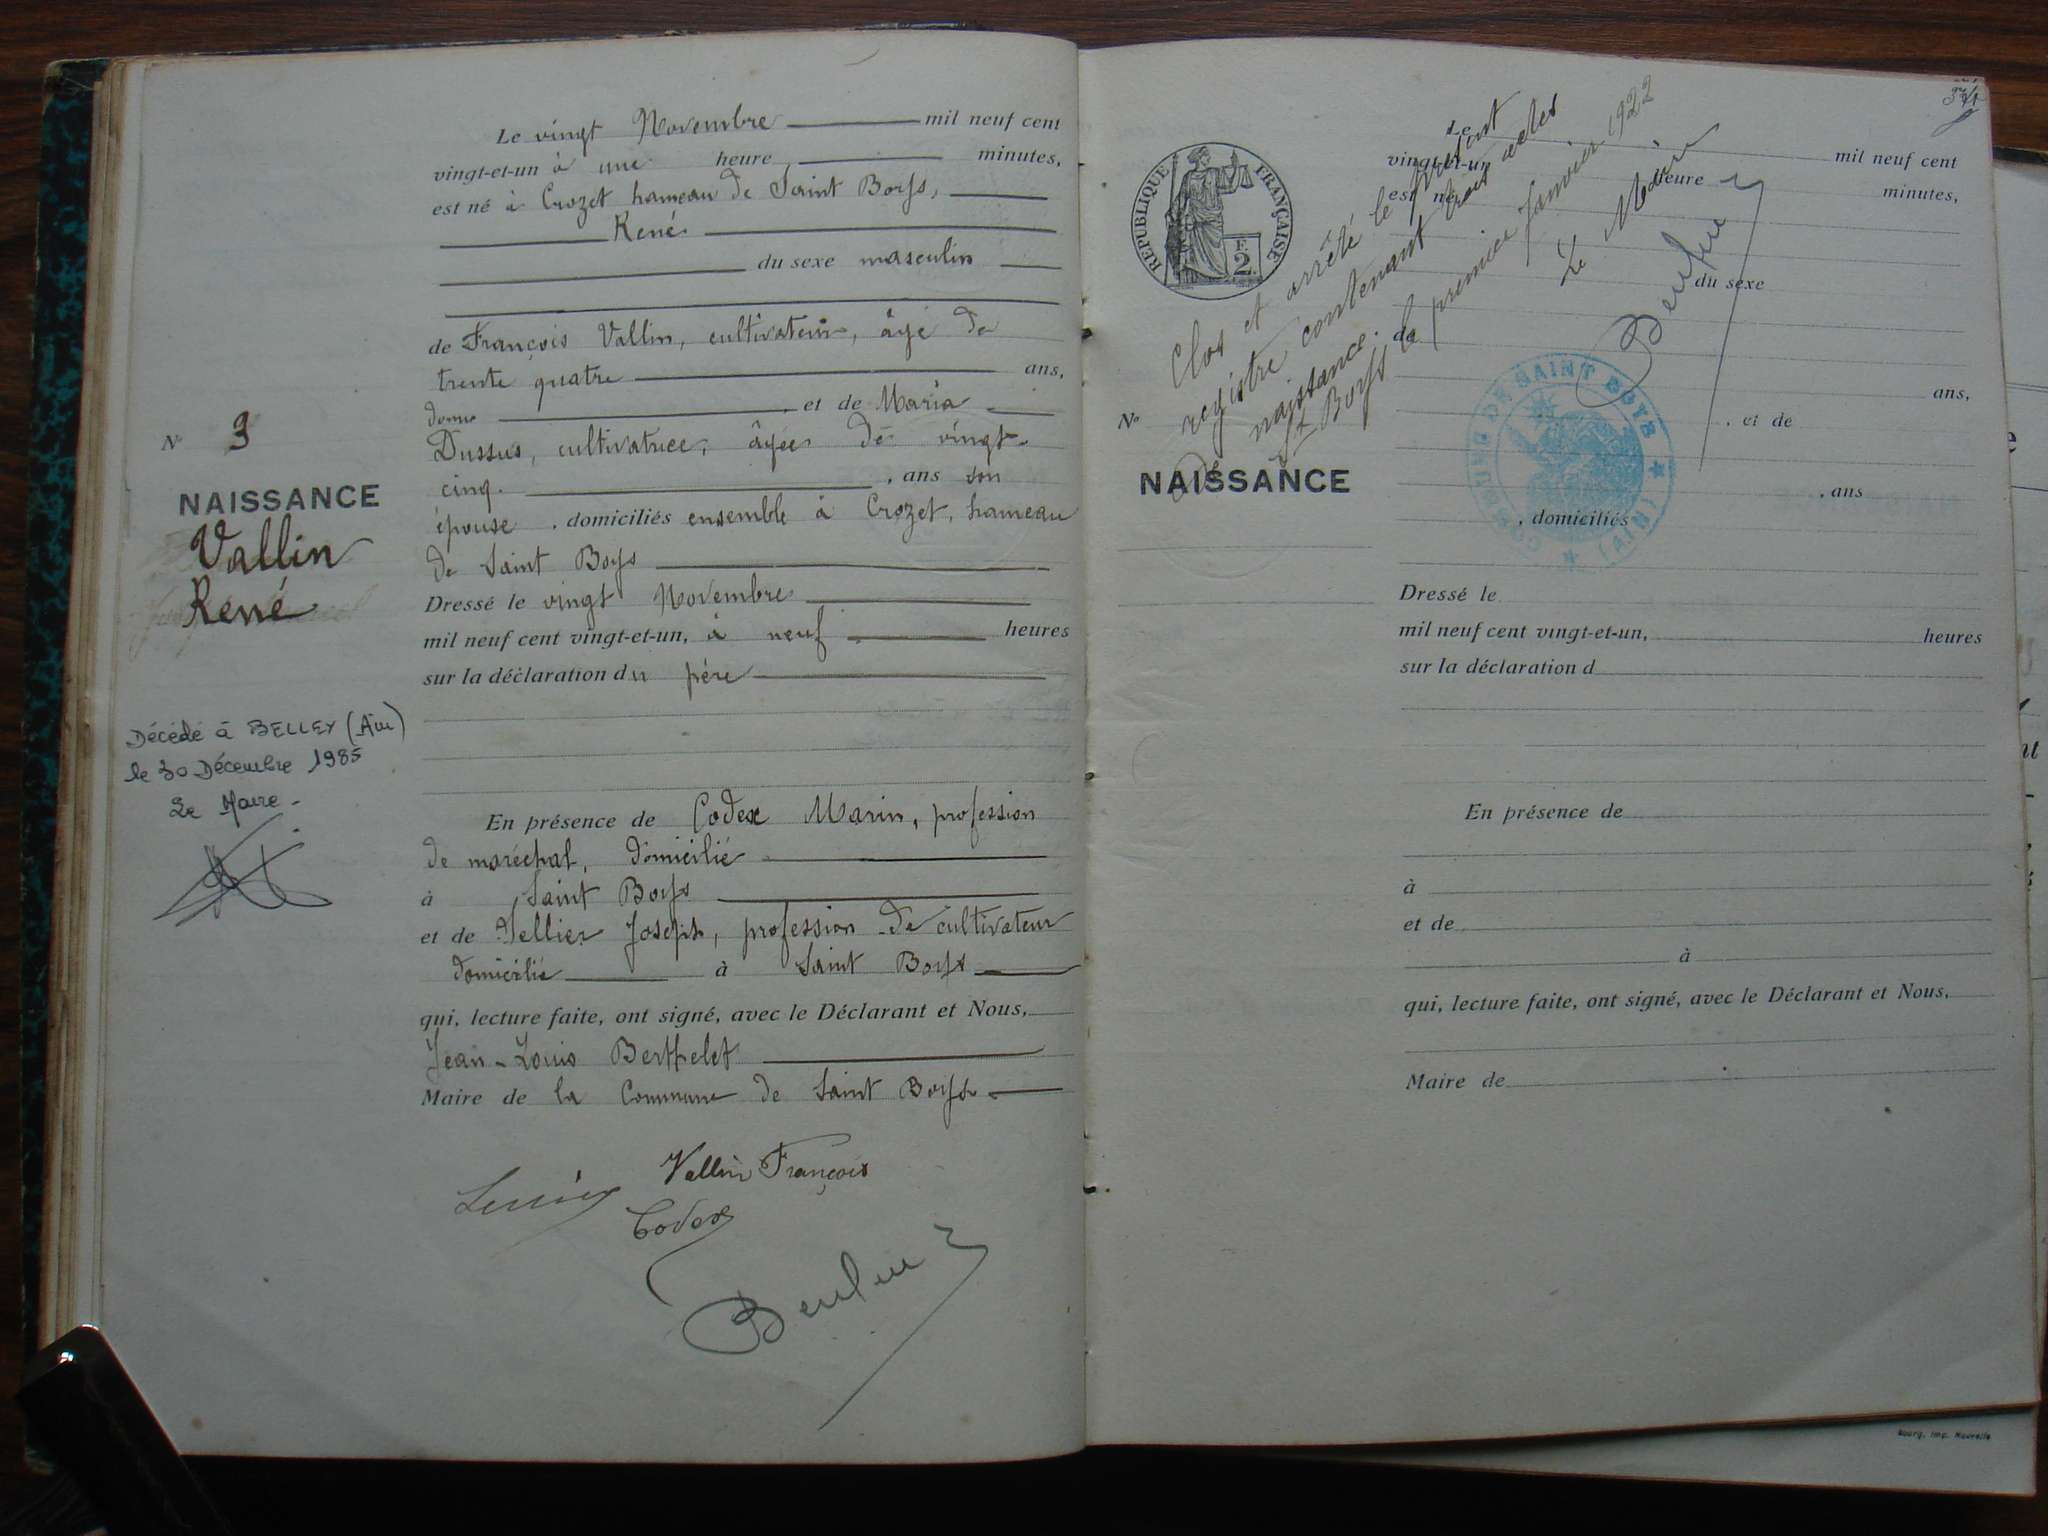 Le vingt Novembre mil neuf cent
vingt-et-un à une heure minutes,
est né à Crozet hameau de Saint Boys,
René
du sexe masculin
de François Vallin, cultivateur, âgé de
trente quatre ans,
et de Maria
Dussus, cultivatrice, âgée de vingt-
cinq. , ans son
épouse , domiciliés ensemble à Crozet, hameau
de Saint Boys
Dressé le vingt Novembre
mil neuf cent vingt-et-un, à neuf heures
sur la déclaration du père
En présence de Codex Marin, profession
de maréchal, domicilié
à Saint Boys
et de Tellier Joseph, profession de cultivateur
domicilié à Saint Boys
qui, lecture faite, ont signé, avec le Déclarant et Nous,
Jean-Louis Berthelet
Maire de la Commune de Saint Boys
Vallin François
Codex
N° 3
NAISSANCE
Vallin
René
Décédé à BELLEY (Ain)
le 30 Décembre 1985
Le Maire
RÉPUBLIQUE FRANÇAISE
F.
2
Clos et arrêté le présent
registre contenant trois actes
de naissance.
St Boys le premier Janvier 1922
Le Maire
COMMUNE DE SAINT BOYS
(AIN)
Le mil neuf cent
vingt-et-un heure minutes,
est né
du sexe
de
ans,
, et de
, ans
, domiciliés
N°
NAISSANCE
Dressé le
mil neuf cent vingt-et-un, heures
sur la déclaration d
En présence de
à
et de
à
qui, lecture faite, ont signé, avec le Déclarant et Nous,
Maire de
Bourg, Imp. Nouvelle